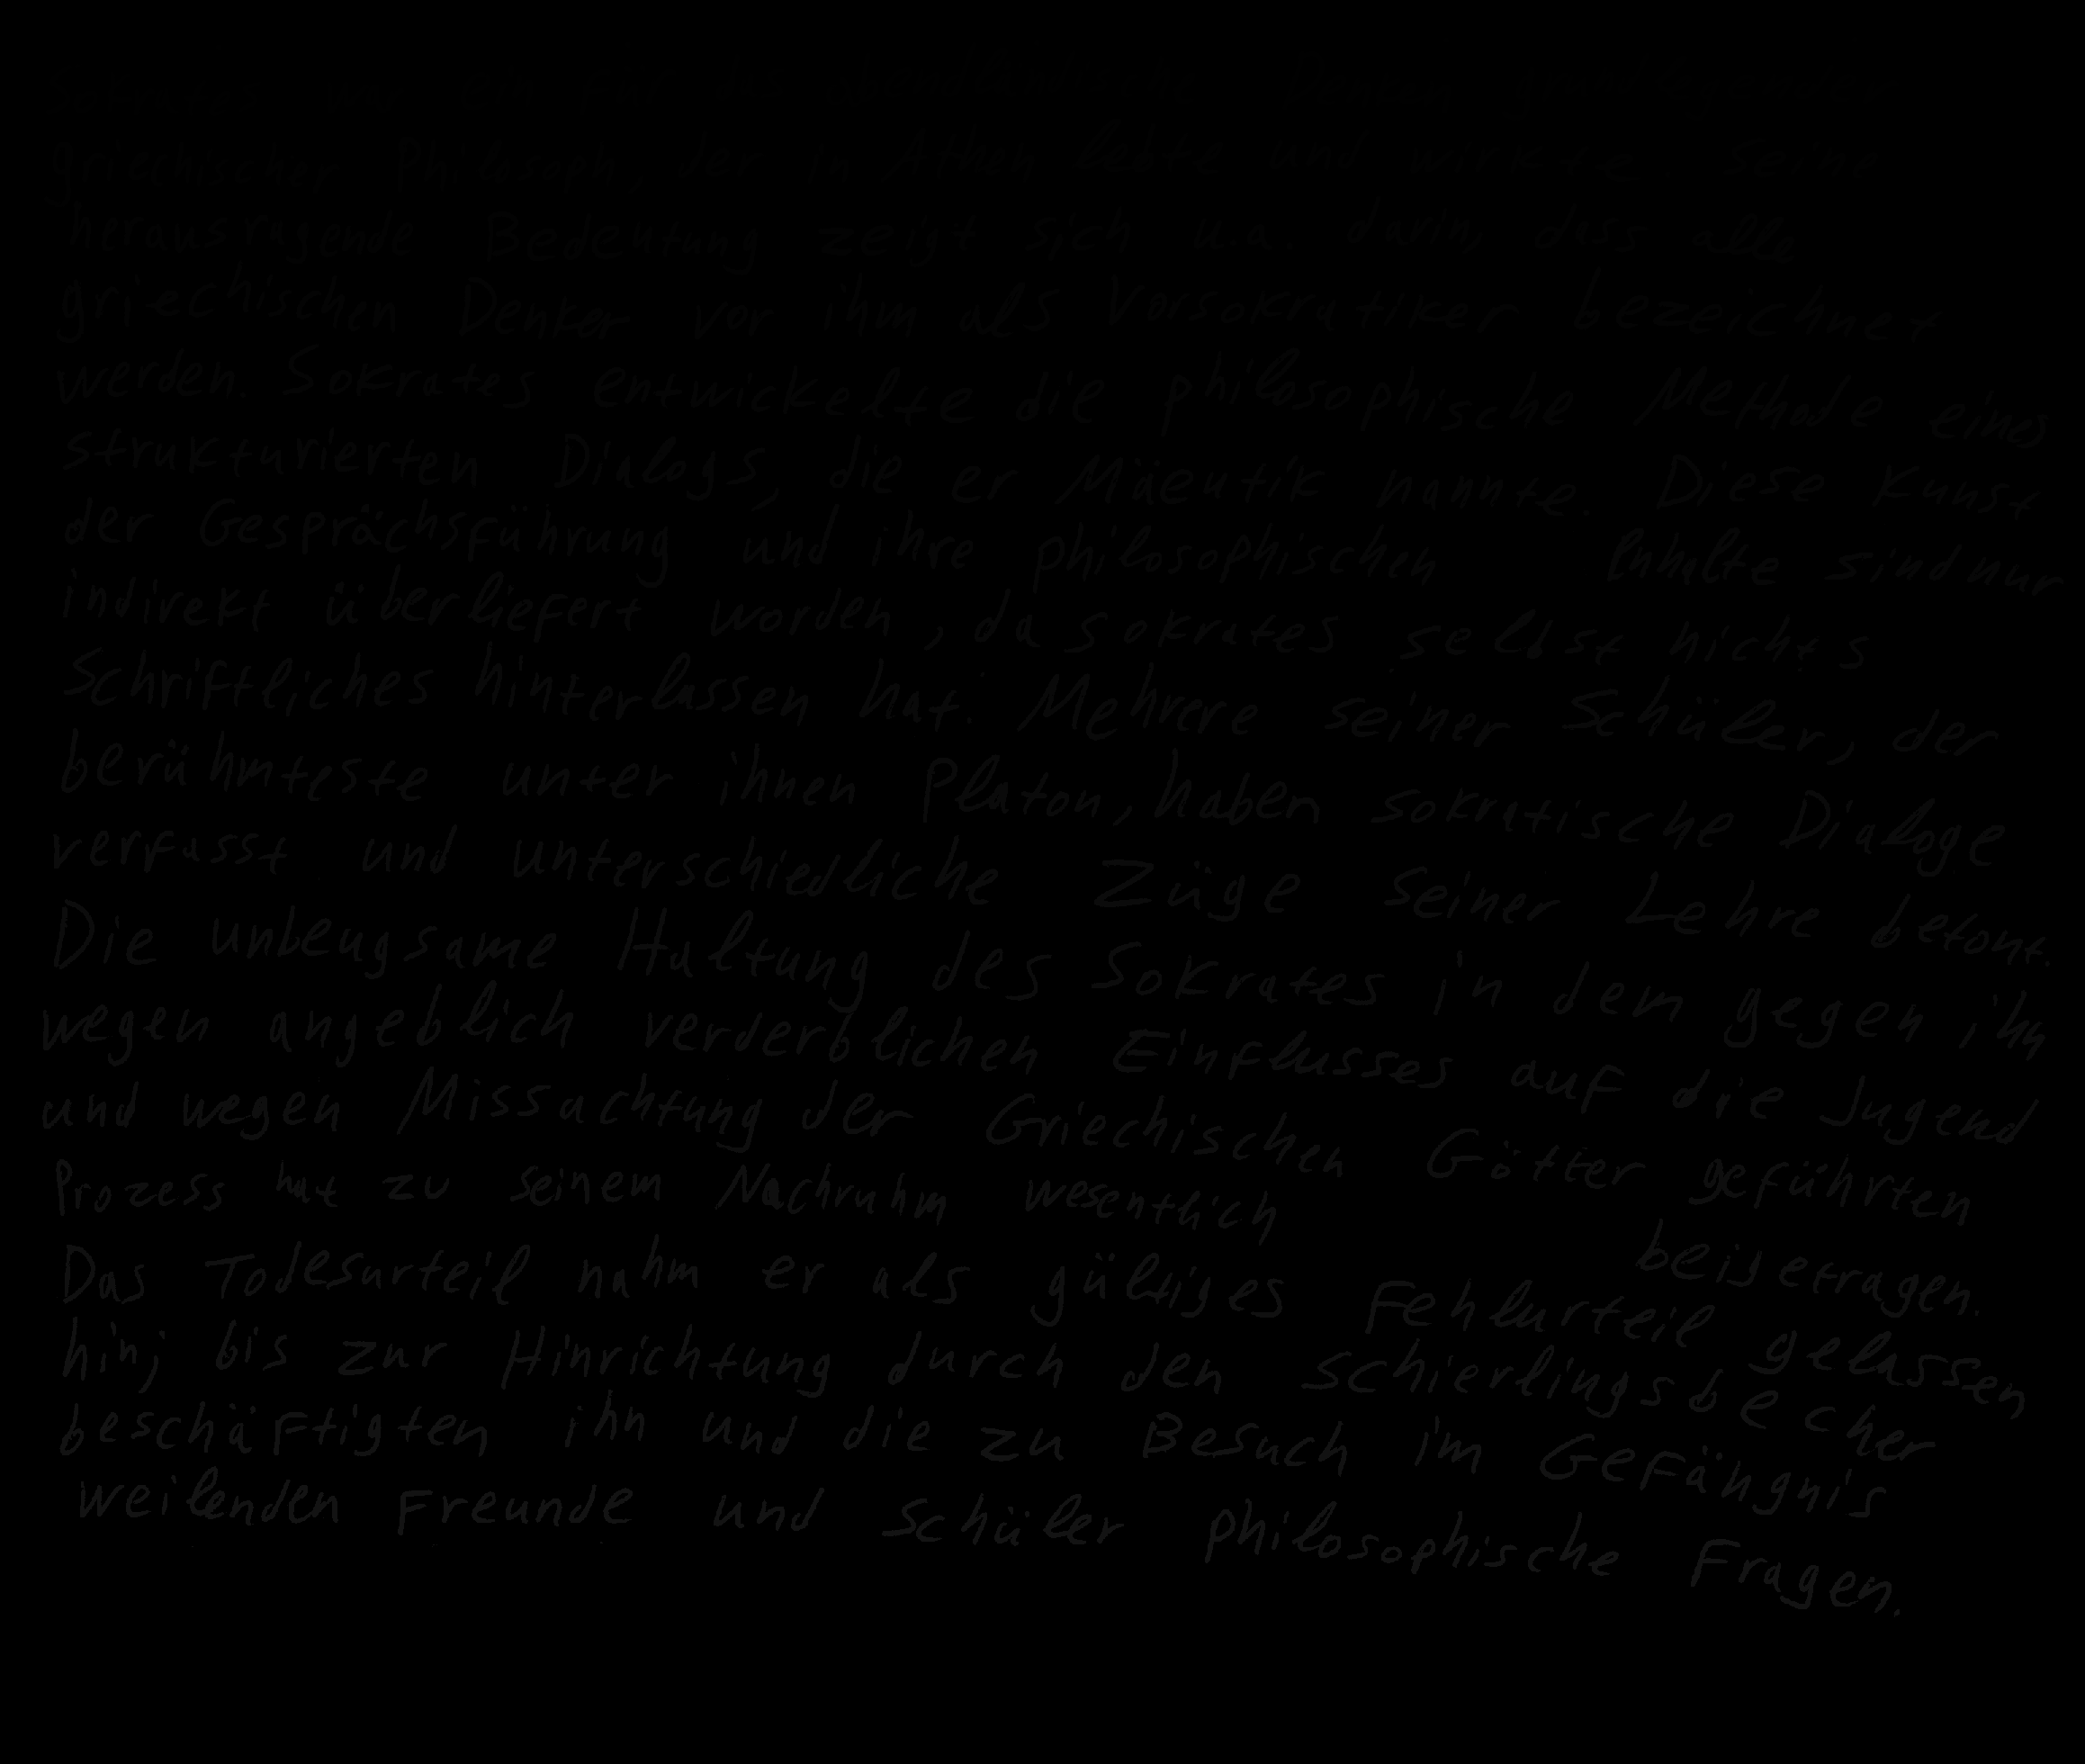 griechischer Philosoph, der in Athen lebte und wirkte. Seine
herausragende Bedeutung zeigt sich u.a. darin, dass alle
griechischen Denker vor ihm als Vorsokratiker bezeichnet
werden. Sokrates entwickelte die philosophische Methode eines
strukturierten Dialogs, die er Mäeutik nannte. Diese Kunst
der Gesprächsführung und ihre philosophischen Inhalte sind nur
indirekt überliefert worden, da sokrates selbst nichts
Schriftliches hinterlassen hat. Mehrere seiner Schüler, der
berühmteste unter ihnen Platon, haben sokratische Dialoge
verfasst und unterschiedliche Züge seiner Lehre betont.
Die unbeugsame Haltung des Sokrates in dem gegen ihn
wegen angeblich verderblichen Einflusses auf die Jugend
und wegen Missachtung der Griechischen Götter geführten
Prozess hat zu seinem Nachruhm wesentlich beigetragen.
Das Todesurteil nahm er als gültiges Fehlurteil gelassen
hin; bis zur Hinrichtung durch den Schierlingsbecher
beschäftigten ihn und die zu Besuch im Gefängnis
weilenden Freunde und Schüler philosophische Fragen.